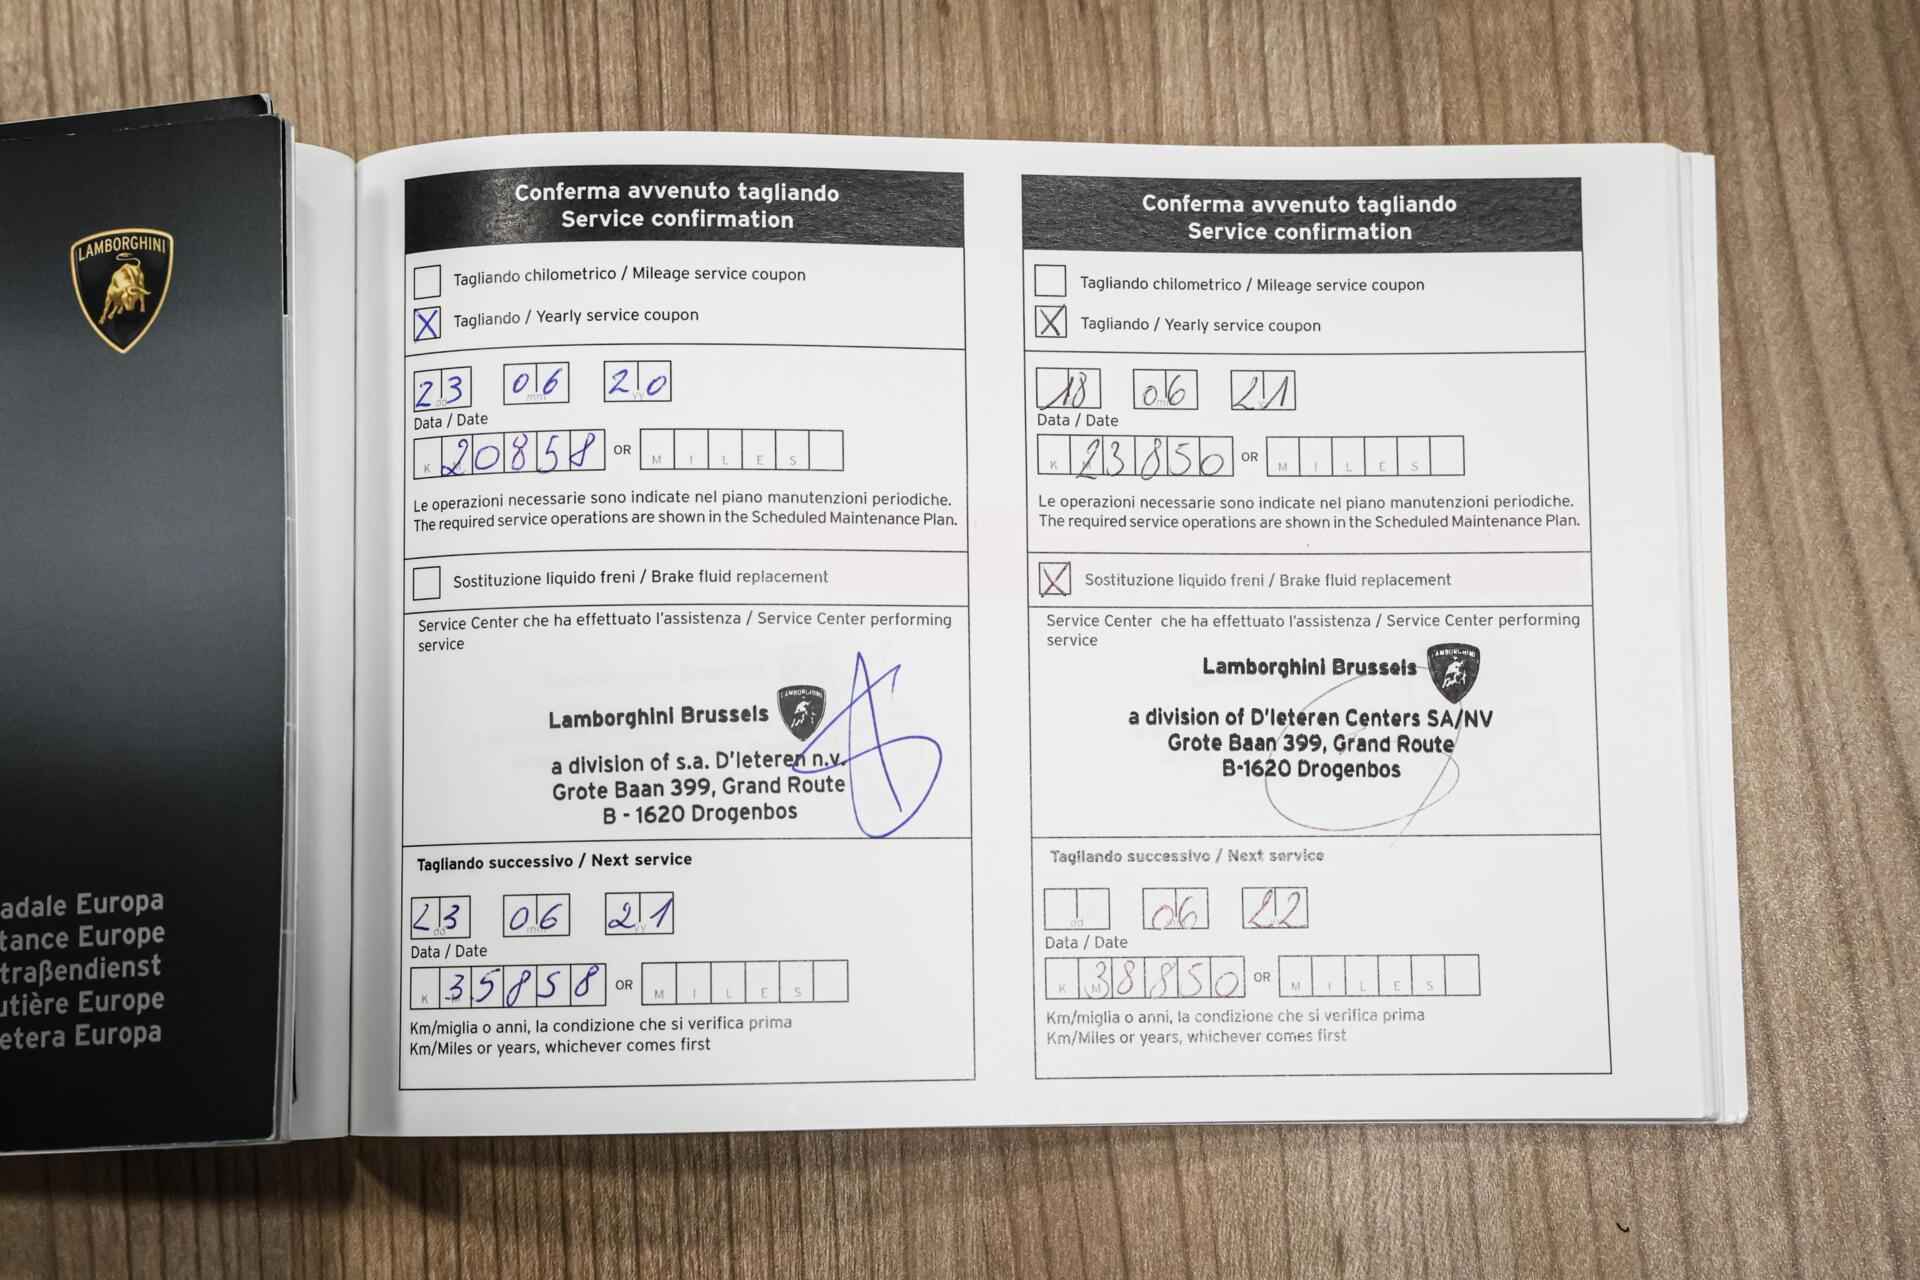 LAMBORGHINI
adale Europa
tance Europe
traßendienst
utière Europe
etera Europa
Conferma avvenuto tagliando
Service confirmation
Tagliando chilometrico / Mileage service coupon
X Tagliando / Yearly service coupon
23 06 20
Data / Date
K 20858 OR M I L E S
Le operazioni necessarie sono indicate nel piano manutenzioni periodiche.
The required service operations are shown in the Scheduled Maintenance Plan.
Sostituzione liquido freni / Brake fluid replacement
Service Center che ha effettuato l'assistenza / Service Center performing
service
Lamborghini Brussels
LAMBORGHINI
a division of s.a. D'Ieteren n.v.
Grote Baan 399, Grand Route
B - 1620 Drogenbos
Tagliando successivo / Next service
23 06 21
Data / Date
K 35858 OR M I L E S
Km/miglia o anni, la condizione che si verifica prima
Km/Miles or years, whichever comes first
Conferma avvenuto tagliando
Service confirmation
Tagliando chilometrico / Mileage service coupon
X Tagliando / Yearly service coupon
18 06 21
Data / Date
K 23850 OR M I L E S
Le operazioni necessarie sono indicate nel piano manutenzioni periodiche.
The required service operations are shown in the Scheduled Maintenance Plan.
X Sostituzione liquido freni / Brake fluid replacement
Service Center che ha effettuato l'assistenza / Service Center performing
service
Lamborghini Brussels
LAMBORGHINI
a division of D'Ieteren Centers SA/NV
Grote Baan 399, Grand Route
B-1620 Drogenbos
Tagliando successivo / Next service
dd 06 22
Data / Date
K M 38850 OR M I L E S
Km/miglia o anni, la condizione che si verifica prima
Km/Miles or years, whichever comes first